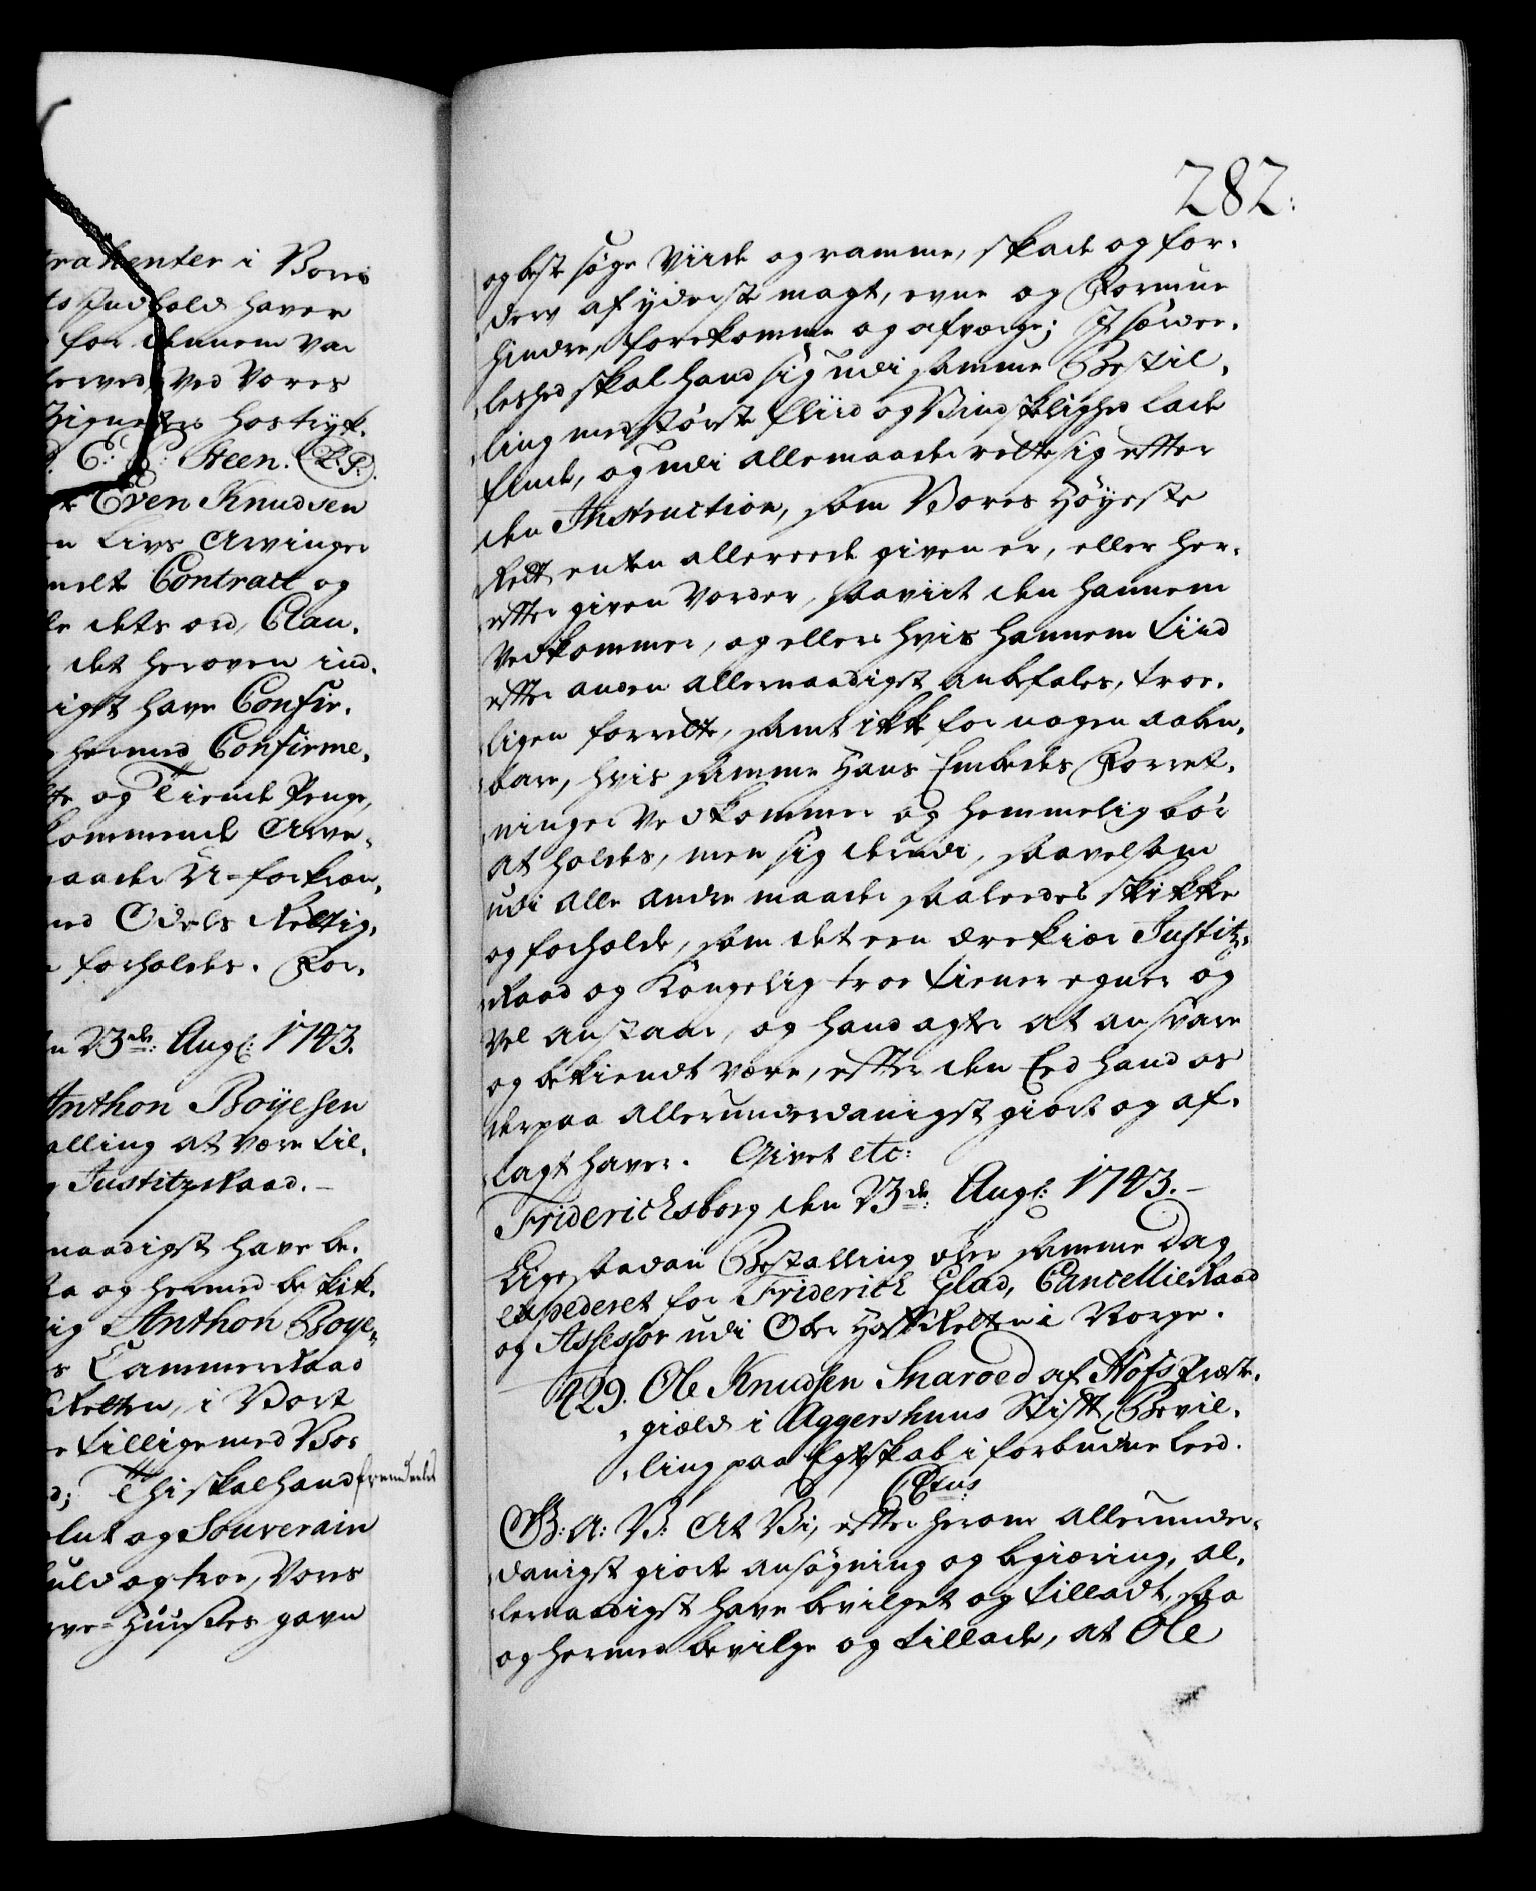 trahenter i Vores
ts Indhold haver
for dennem var
herved Ved Vores
Zignetes hostryk.
C: E: Steen. (L.S.)
Even Knudsen
Livs Arvinger
meldte Contract og
dets ord, Clau,
det heroven ind,
igst have Confir,
hermed Confirme,
og Tiende Penge,
kommende Arve,
maader U-forkræn,
med Odels Rettig,
forholdes. For,
23de: Aug: 1743.
Anthon Böyesen
alling at være til,
Justitz Raad.
naadigst have be,
og hermed beskik,
Anthon Boye,
Cammer Raad
Retten, i Vort
tilligemed Vor
Thi skal hand fremdeles
lut og Souverain
huld og troe, Vores
rve-Huuses gavn
282:
og beste søge Viide og ramme, skade og for,
derv af yderste magt, evne og Formue
hindre, forekomme og afværge; Isærde,
leshed skal hand sig udi samme Bestil,
ling med störste fliid og Vindskibelighed lade
finde, og udi alle maader rette sig efter
den Instruction, som Vores Høyeste
Rett enten allereede given er, eller her,
efter given Vorder, saaviit den hannem
Vedkommer, og ellers hvis hannem tiid
efter anden allernaadigst anbefales, troe,
ligen forrette, samt ikke for nogen aaben,
bare, hvis samme Hans Embedes Forret,
ninger Vedkommer og hemmelig bör
at holdes, men sig derudi, saavelsom
udi alle andre maader saaledes skikke
og forholde, som det een ærekiær Justitz,
Raad og Kongelig troe tiener egner og
vel anstaar, og hand agter at ansvare
og bekiendt være, efter den Eed hand os
derpaa allerunderdanigst giort og af,
lagt haver. Givet etc:
Friderichsborg den 23de: Aug: 1743.
Ligesaadan Bestalling blev samme Dag
expederet for Friderich Glad, Cancellie Raad
og Assessor udi Ober Hof Retten i Norge.
429. Ole Knudsen Snaroed af Hofs Præste,
giæld i Aggershuus Stift, Bevil,
ling paa Egteskab i forbudne Leed.
Gtus
G: A: V: At Vi, efter herom allerunder,
danigst giorte ansøgning og begiæring, al,
lernaadigst have bevilget og tilladt, saa
og hermed bevilge og tillade, at Ole